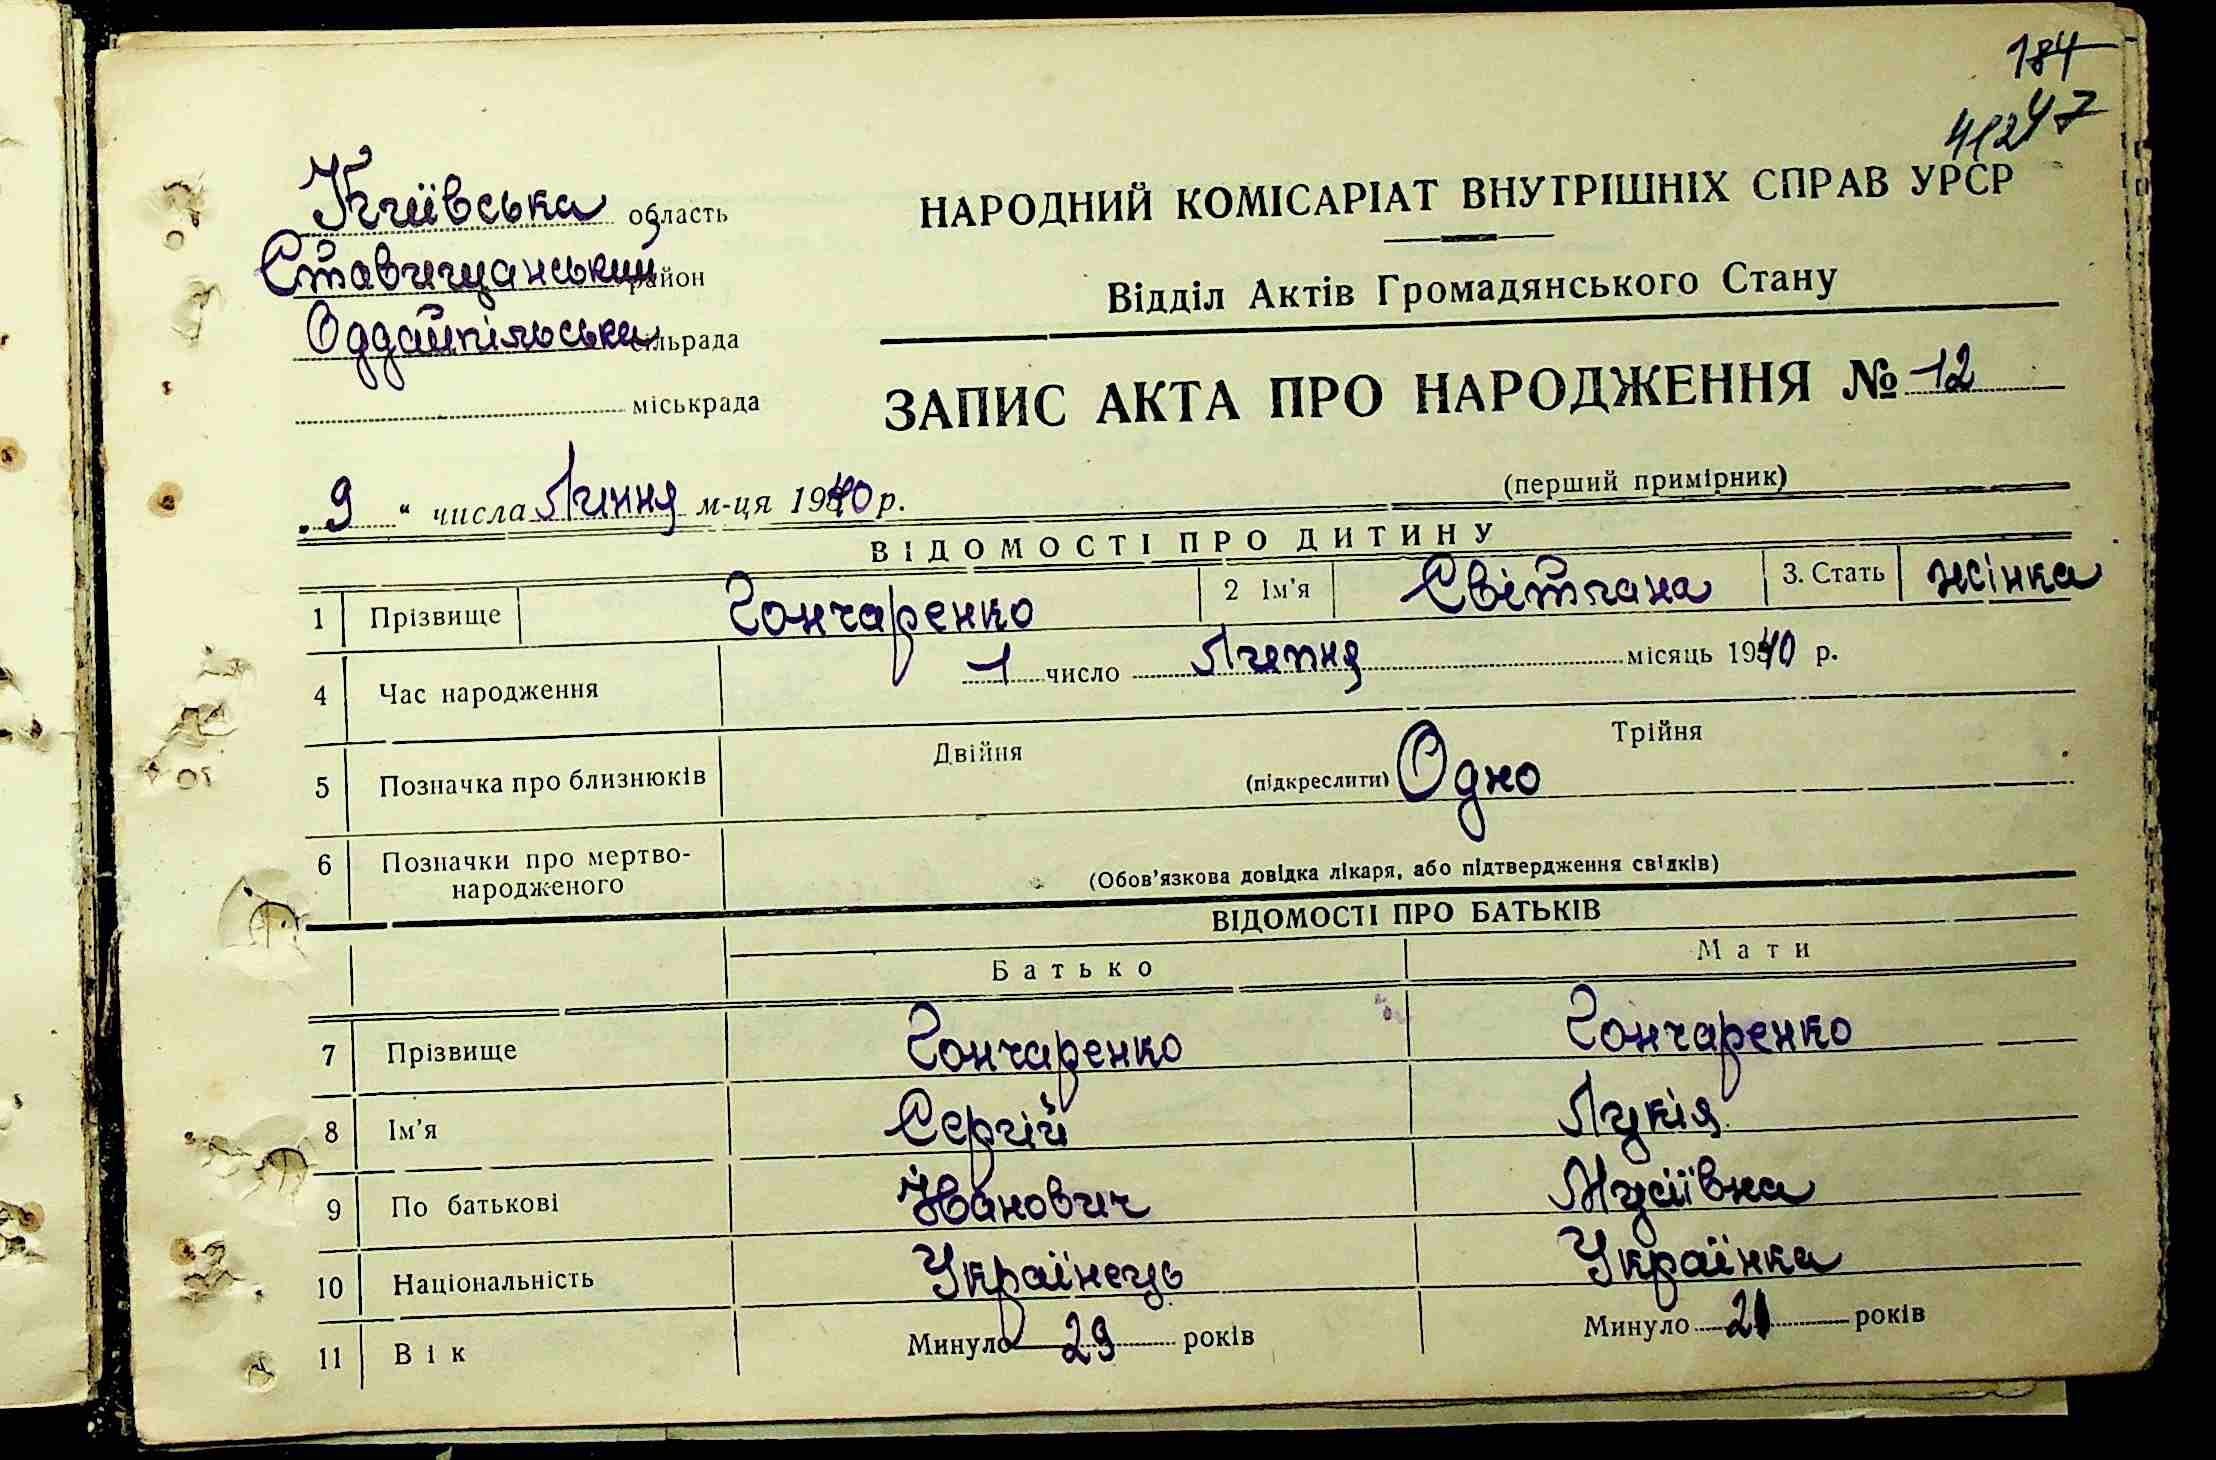 184
47
Київська область
Ставищанський район
Оддайпільська сільрада
міськрада
НАРОДНИЙ КОМІСАРІАТ ВНУТРІШНІХ СПРАВ УРСР
Відділ Актів Громадянського Стану
ЗАПИС АКТА ПРО НАРОДЖЕННЯ № 12
(перший примірник)
„9“ числа Липня м-ця 1940 р.
ВІДОМОСТІ ПРО ДИТИНУ
1 Прізвище Гончаренко 2 Ім'я Світлана 3. Стать жінка
4 Час народження 1 число Липня місяць 1940 р.
5 Позначка про близнюків Двійня (підкреслити) Одно Трійня
6 Позначки про мертво-
народженого (Обов'язкова довідка лікаря, або підтвердження свідків)
ВІДОМОСТІ ПРО БАТЬКІВ
Батько Мати
7 Прізвище Гончаренко Гончаренко
8 Ім'я Сергій Лукія
9 По батькові Іванович Мусіївна
10 Національність Українець Українка
11 Вік Минуло 29 років Минуло 21 років